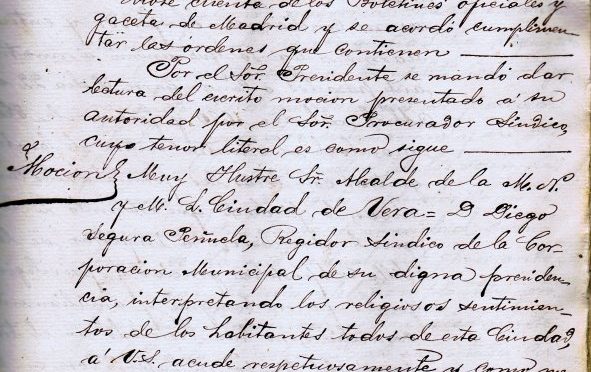 Diose cuenta de los Boletines oficiales y
gaceta de Madrid y se acordó cumplimen-
tar las ordenes que contienen
Por el Sor. Presidente se mandó dar
lectura del escrito mocion presentado á su
autoridad por el Sor. Procurador Sindico,
cuyo tenor literal es como sigue
Mocion Muy Ilustre Sr. Alcalde de la M. N.
y M. L. Ciudad de Vera= D Diego
Segura Peñuela, Regidor Sindico de la Cor-
poracion Municipal de su digna presiden-
cia, interpretando los religiosos sentimien-
tos de los habitantes todos de esta Ciudad,
á V.S. acude respetuosamente y como